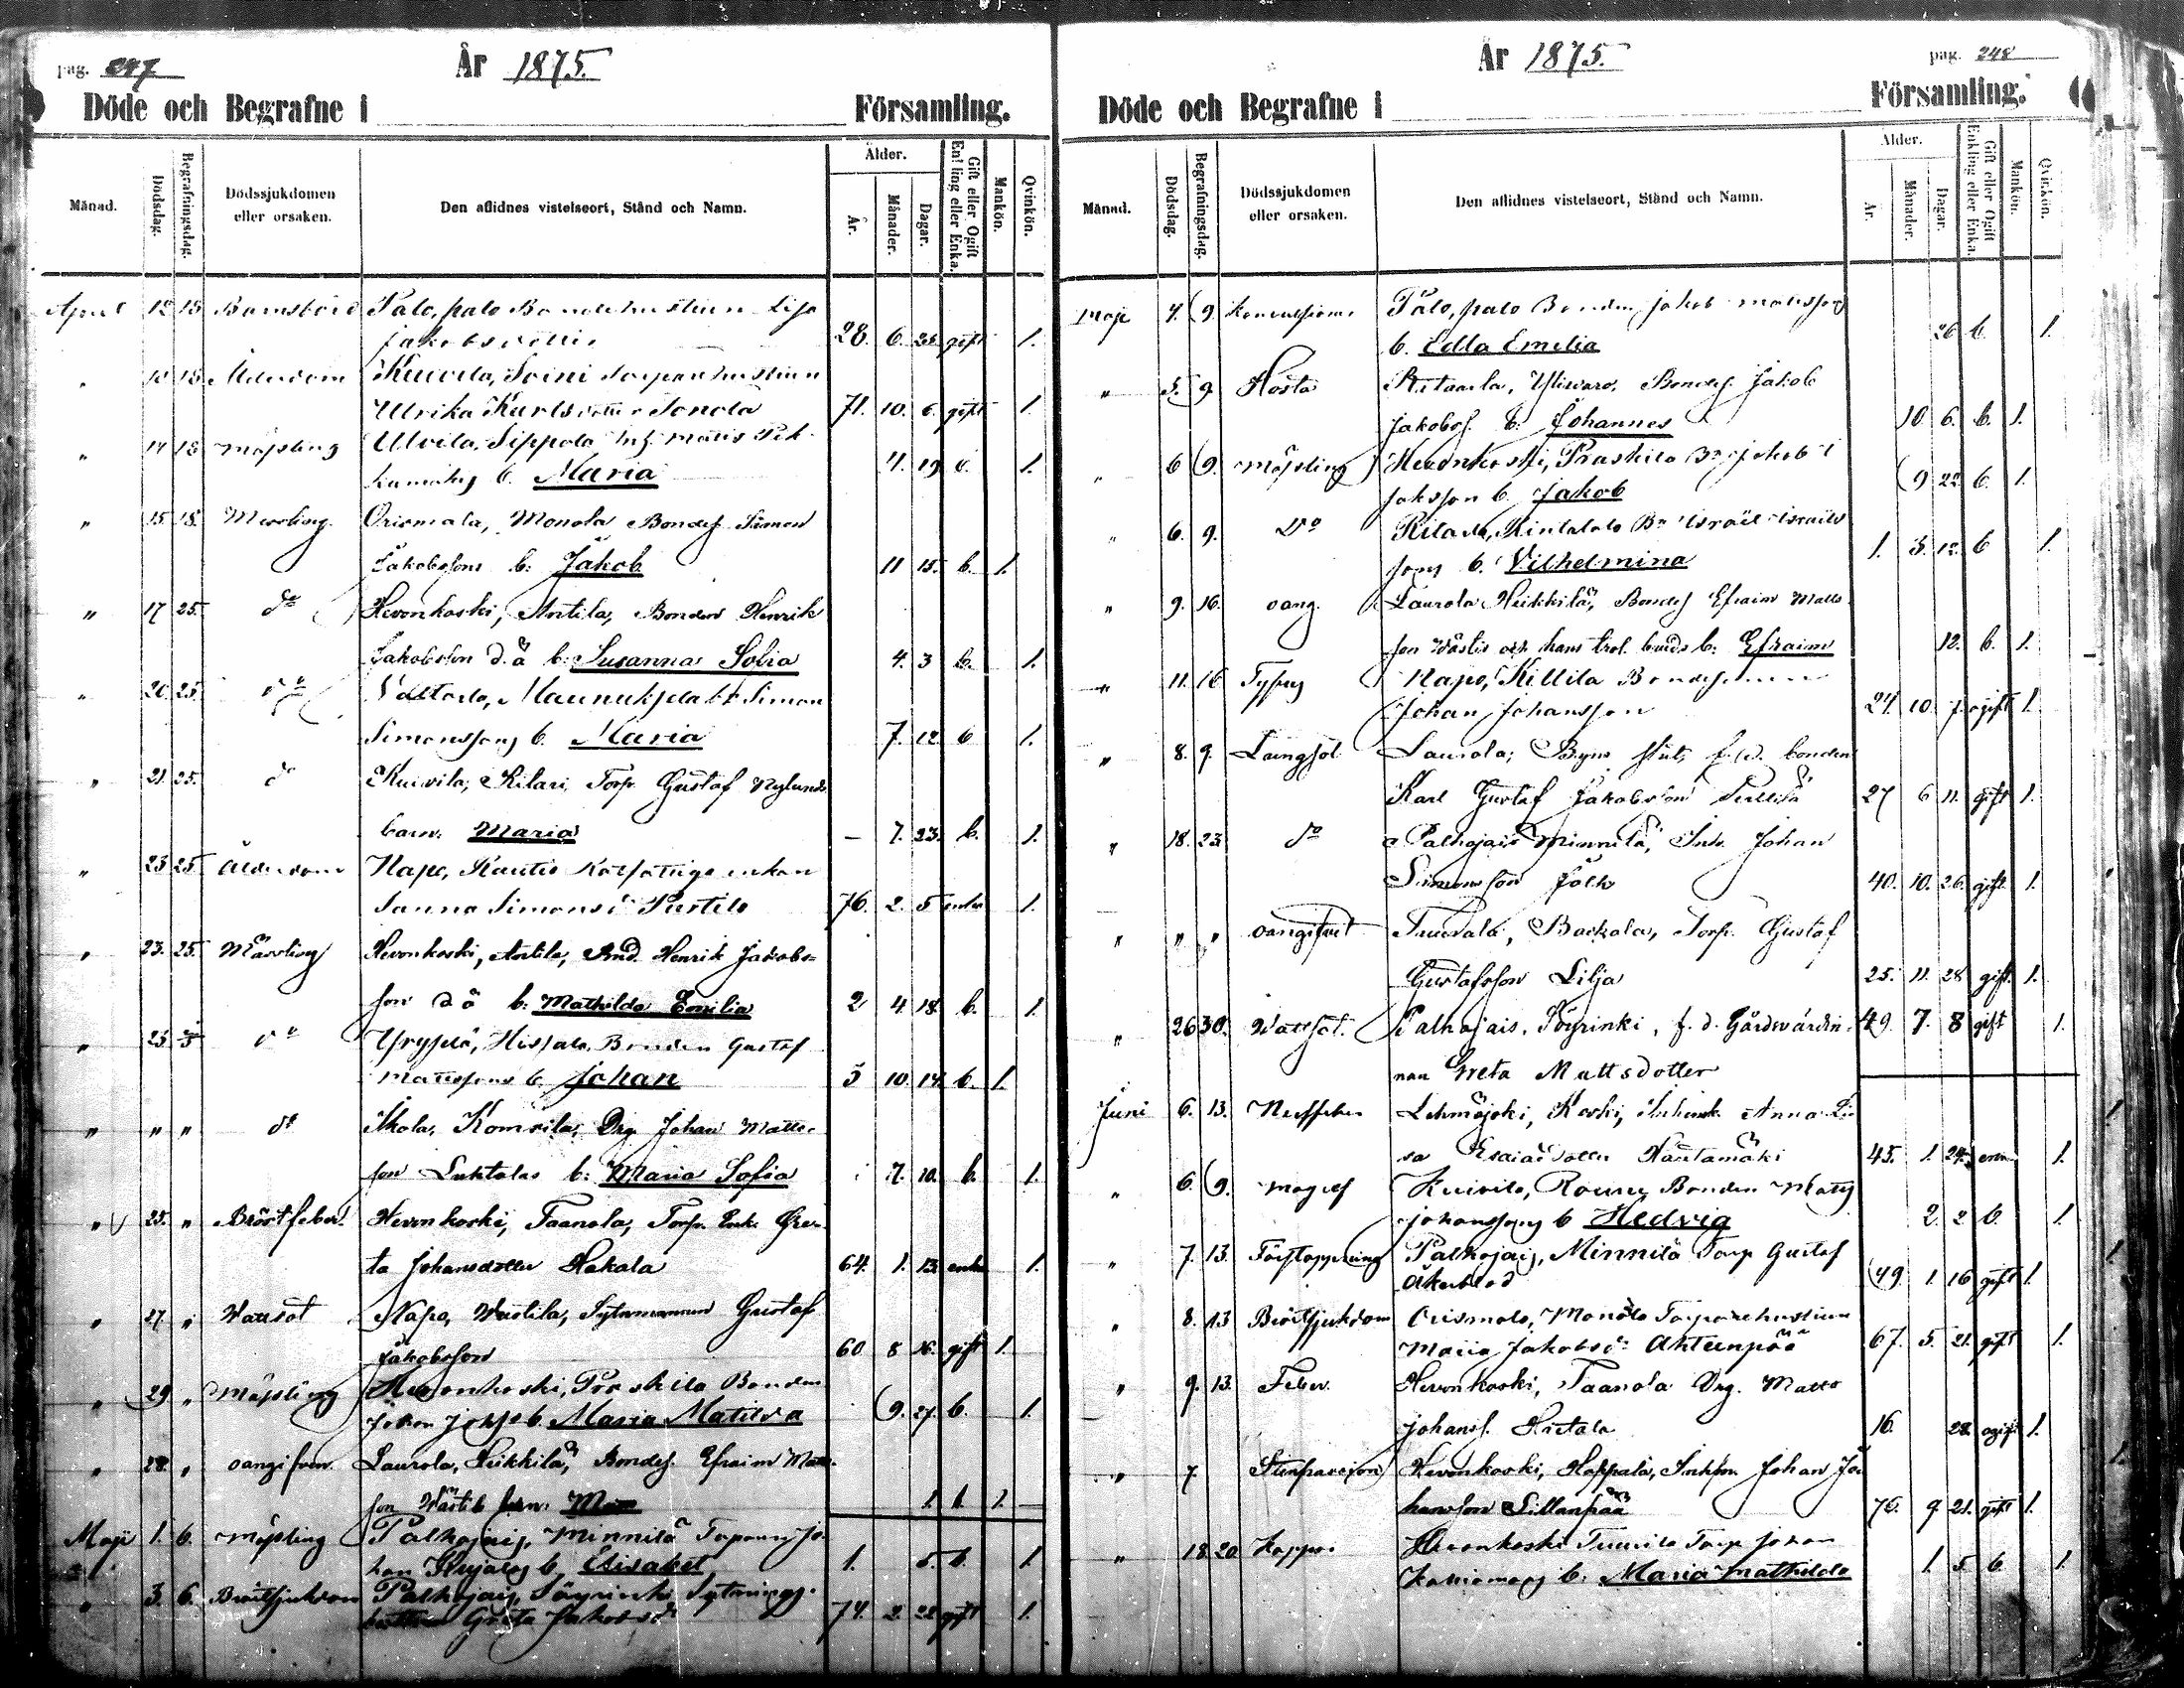 pag. 247
År 1875.
Döde och Begrafne i Församling.
Månad.
Dödsdag.
Begrafningsdag.
Dödssjukdomen eller orsaken.
Den aflidnes vistelseort, Stånd och Namn.
Ålder.
År.
Månader.
Dagar.
Gift eller Ogift
Enkling eller Enka.
Mankön.
Qvinkön.
April 12 18 Barnsbörd Palo, palo Bondehustrun Lisa
Jakobsdotter 28. 6. 25 gift 1.
" 18 Ålderdom Kuivila, Soini Torparehustrun
Ulrika Karlsdotter Tonola 71. 10. 6. gift 1.
" 14 18 mässling Ulvila, Sippola Inh. Matts
b. Maria 4. 19 b. 1.
" 15 18. Messling. Orismala, Monola Bondes. Simon
Jakobssons b. Jakob 11 15. b. 1.
" 17 25. do Hevonkoski, Antila, Bonden Henrik
Jakobsson d.ä b. Susanna Sofia 4. 3 b. 1.
" 20. 25. do Valtaala, Simon
Simonssons b. Maria 7. 12. b 1.
" 21. 25. do Kuivila, Kilari, Torp. Gustaf Nylunds
barn. Maria – 7. 23. b. 1.
" 23 25. Ålderdom Napo, Rautio enkan
Sanna Simonsd. Perttilä 76. 2. 5 enka 1.
" 23. 25. Mässling Hevonkoski, Antila, Bond. Henrik Jakobs=
son d ä b. Mathilda Emilia 2 4 18. b. 1.
" 25. do Yryselä, Hissala, Bonden Gustaf
Mattssons b. Johan 5 10. 14. b. 1.
" " " do Ikola, Komsila, Drg. Johan Matts-
son Luhtalas b. Maria Sofia 7. 10. b. 1.
" 25. " Bröstfeber. Hevonkoski, Taanola, Torp. Enk. Gre-
ta Johansdotter Hakala 64. 1. 13. enka 1.
" 27. " Vattsot Napo, Wästilä, Sytnemannen Gustaf
Jakobsson 60 8 26. gift 1.
" 29. " Mässling Hevonkoski, Praskila Bonden
Johan b. Maria Matilda 9. 27. b. 1.
" 28. " oangifven. Laurola, Heikkilä, Bondes. Efraim Matts-
son Wästis barn. 1. b. 1.
Maji 1. 6. mässling Palhojais, Minnilä Torparen Jo-
han Kujalas b. Elisabet 1. 5. b. 1.
" 3. 6. Bröstsjukdom Palhojais, Söyrinki
Greta Jakobsd. 74. 2. 22 gift 1.
pag. 248
År 1875.
Döde och Begrafne i Församling.
Månad.
Dödsdag.
Begrafningsdag.
Dödssjukdomen eller orsaken.
Den aflidnes vistelseort, Stånd och Namn.
Ålder.
År.
Månader.
Dagar.
Gift eller Ogift
Enkling eller Enka.
Mankön.
Qvinkön.
Maji 4. 9. Konvulsioner Palo, palo Bonden Jakob Mattssons
b. Edla Emilia 26 b. 1.
" 5. 9. Hosta Yliwaro, Bondes. Jakob
Jakobss. b. Johannes 10. 6. b. 1.
" 6 9. mässling Hevonkoski, Praskila Bn Jakob
b. Jakob 9 22. b. 1.
" 6. 9. Do Ritaala, Rintalalo Bn Israel Israels-
sons b. Vilhelmina 1. 3. 12. b 1.
" 9. 16. oang. Laurola Heikkilä, Bondes Efraim Matts-
son Wästis och hans trol. b. Efraim 12. b. 1.
" 11. 16 Typus Napo, Killila Bondesonen
Johan Johansson 24. 10. 7. ogift 1.
" 8. 9. Lungsot Laurola, Byns f.d. bonden
Karl Gustaf Jakobsson 27 6 11. gift 1.
" 18. 23 do Palhojais Minnilä, Inh. Johan
Simonsson Jolk 40. 10. 26. gift 1.
" " " oangifvet Tuurala, Backala, Torp. Gustaf
Gustafsson Lilja 25. 11. 28 gift. 1.
" 26 30. Wattsot. Palhojais, Söyrinki, f. d. Gårdsvärdin- 49. 7. 8 gift 1.
nan Greta Mattsdotter
Juni 6. 13. Nerffeber Lehmäjoki, Koski, Inhienk. Anna Li-
sa Esaiædotter Hautamäki 45. 1. 24. 1.
" 6. 9. magref Kuivila, Rouny Bonden Matts
Johanssons b Hedvig 2. 2 b. 1.
" 7. 13. Förstoppning Palhojais, Minnilä Torp Gustaf
Åkerblad 49. 1. 16 gift 1.
" 8. 13 Bröstsjukdom Orismala, Monola Torparehustrun
Maria Jakobsd. Ahteenpää 67. 5. 21. gift 1.
" 9. 13. Feber. Hevonkoski, Taanola Drg. Matts
Johanss. Hietala 16. 28. ogift 1.
" 7 Stenpassion Hevonkoski, Hoppala, Inhson Johan Jo-
hansson Sillanpää 76. 9 21. gift 1.
" 18 20 Koppor Hevonkoski Tuurila Torp Johan
b. Maria Mathilda 1. 5 b. 1.